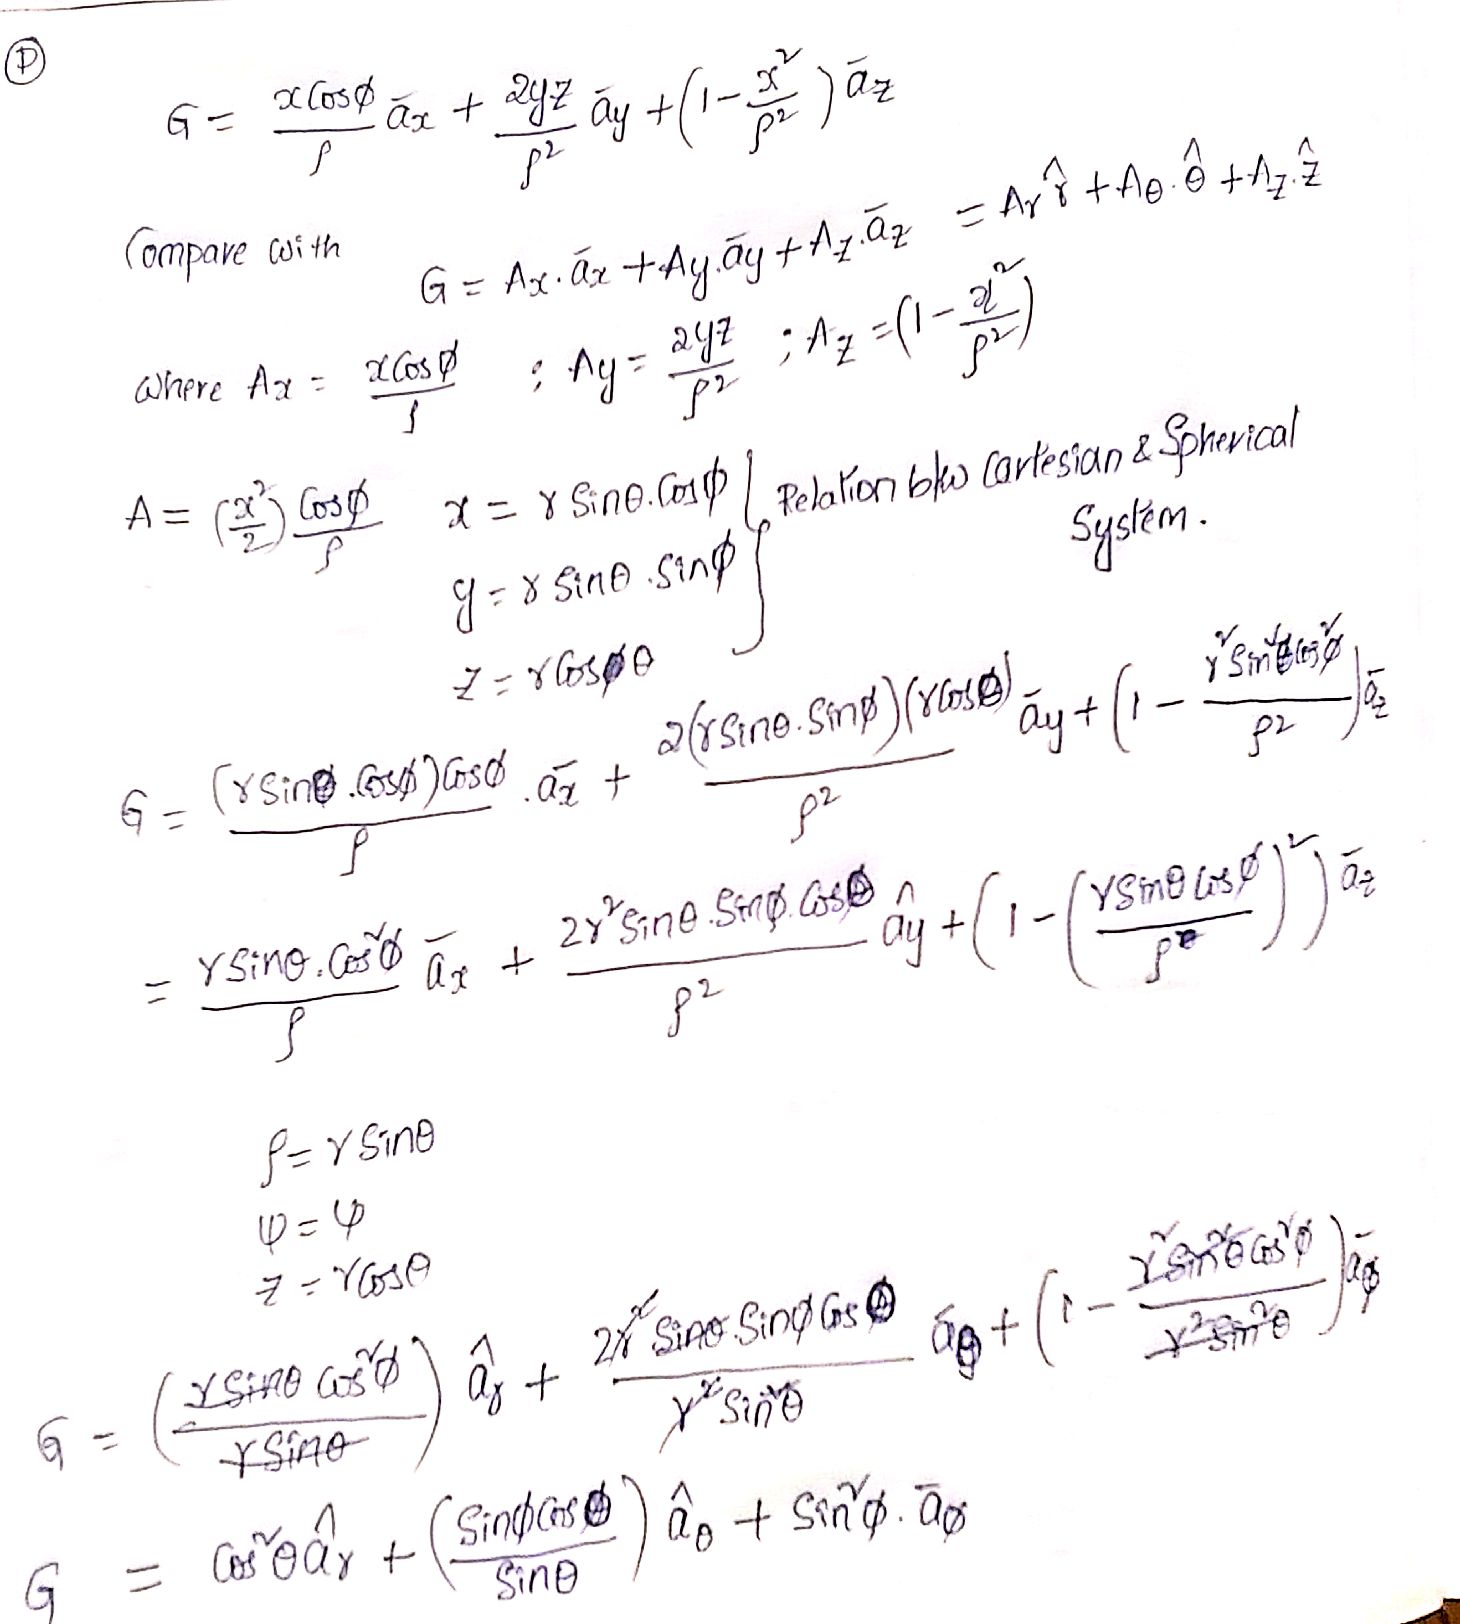 P
G = x Cosφ/ρ āx + 2yz/ρ² āy + (1 - x²/ρ²) āz
Compare with
G = Ax. āx + Ay. āy + Az. āz = Ar r̂ + Aθ. θ̂ + Az. ẑ
where Ax = x Cosφ/ρ ; Ay = 2yz/ρ² ; Az = (1 - x²/ρ²)
A = (x²/2) Cosφ/ρ x = r Sinθ. Cosφ } Relation b/w Cartesian & Spherical
System.
y = r Sinθ. Sinφ
z = r Cosθ
G = (r Sinθ. Cosφ) Cosφ/ρ . āx + 2(r Sinθ. Sinφ)(r Cosθ)/ρ² āy + (1 - r² Sin²θ Cos²φ/ρ²) āz
= r Sinθ. Cos²φ/ρ āx + 2r² Sinθ. Sinφ. Cosθ/ρ² ây + (1 - (r Sinθ Cosφ/ρ)²) āz
ρ = r Sinθ
φ = φ
z = r Cosθ
G = (r Sinθ Cos²φ/r Sinθ) âr + 2r² Sinθ. Sinφ Cosθ/r² Sin²θ āθ + (1 - r² Sin²θ Cos²φ/r² Sin²θ) āφ
G = Cos²θ âr + (Sinφ Cosθ/Sinθ) âθ + Sin²φ. āφ